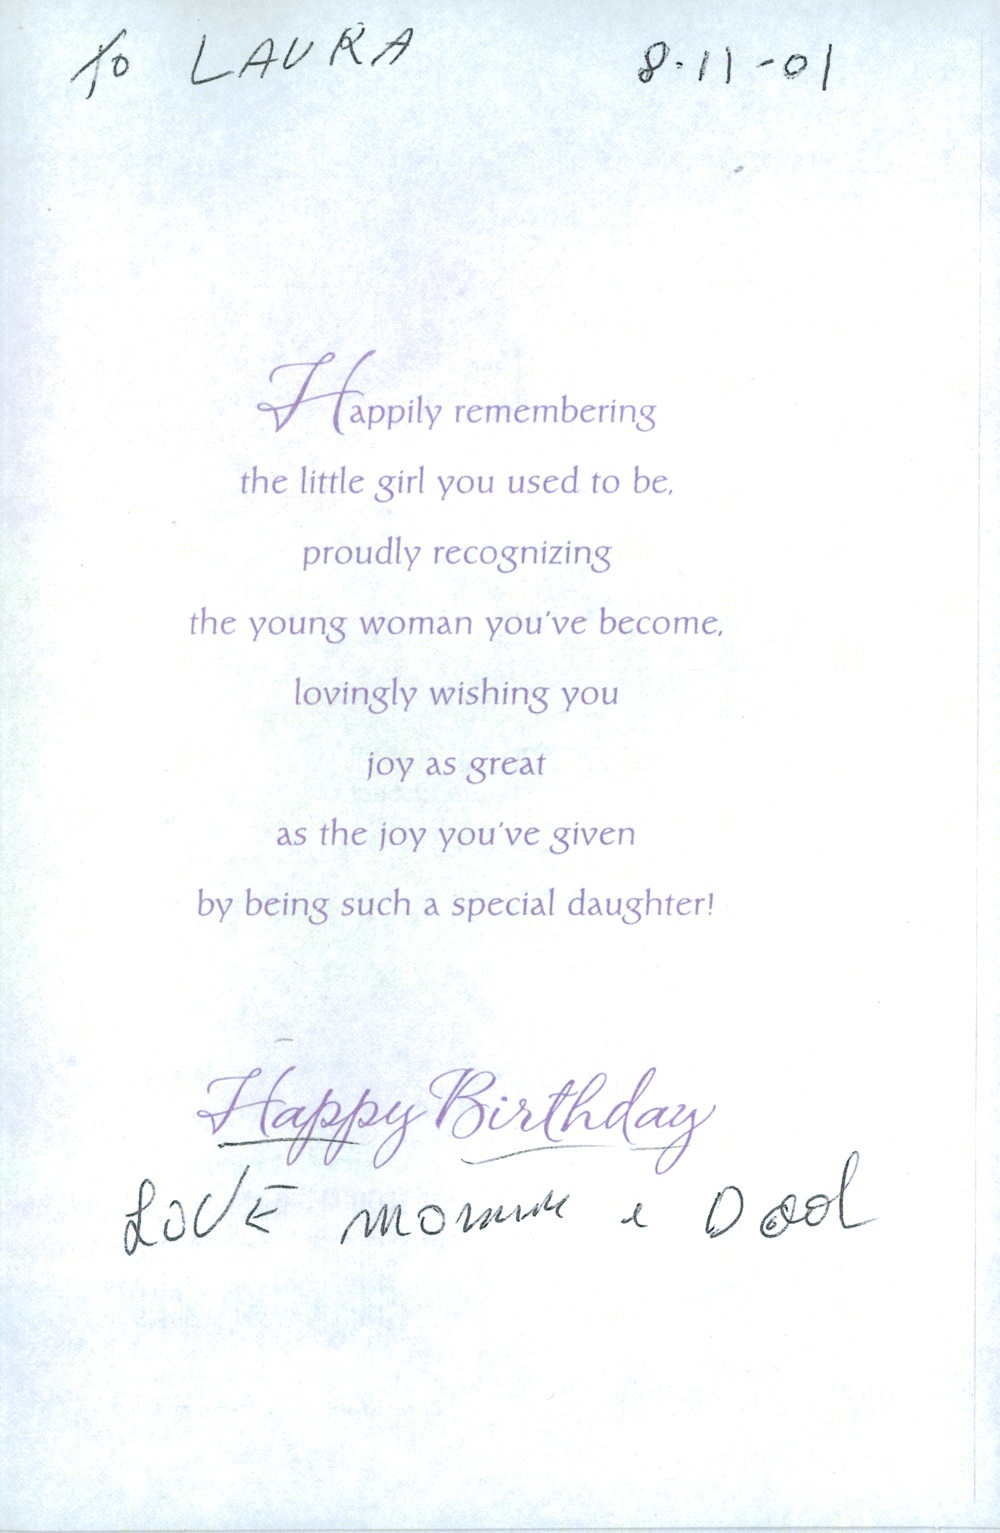 To LAURA 8-11-01
Happily remembering
the little girl you used to be,
proudly recognizing
the young woman you've become,
lovingly wishing you
joy as great
as the joy you've given
by being such a special daughter!
Happy Birthday
LOVE & Dad